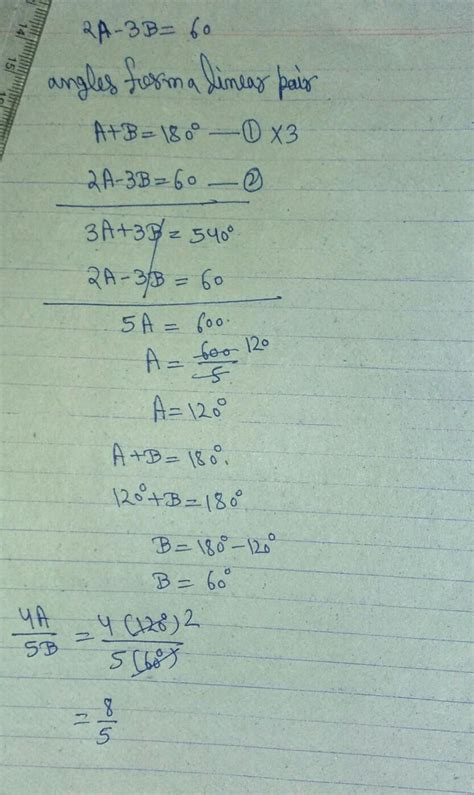 14
15
16
2A-3B= 60
angles form a linear pair
A+B=180° —① ×3
2A-3B=60 —②
3A+3B = 540°
2A-3B = 60
5A = 600.
A = 600/5 120
A=120°
A+B=180°.
120°+B=180°
B=180°-120°
B=60°
4A/5B = 4(120°)2/5(60°)
= 8/5